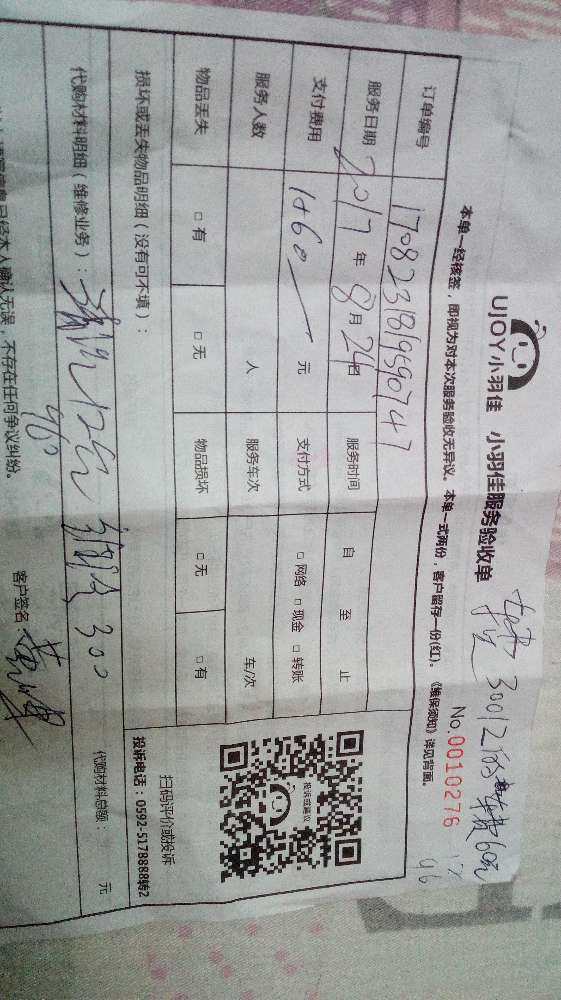 UJOY小羽佳 小羽佳服务验收单
本单一经核签，即视为对本次服务验收无异议。本单一式两份，客户留存一份(红)。《维保须知》详见背面。
No.0010276
订单编号 1708231819590747
服务日期 2017年8月24日 服务时间 自 至 止
支付费用 1+60 元 支付方式 □网络 □现金 □转账
服务人数 人 服务车次 车/次
物品丢失 □有 □无 物品损坏 □无 □有
损坏或丢失物品明细（没有可不填）：
代购材料明细（维修业务）： 300 代购材料总额： 元
960
已经本人确认无误，不存在任何争议纠纷。 客户签名
投诉或建议
扫码评价或投诉
投诉电话：0592-5178888转2